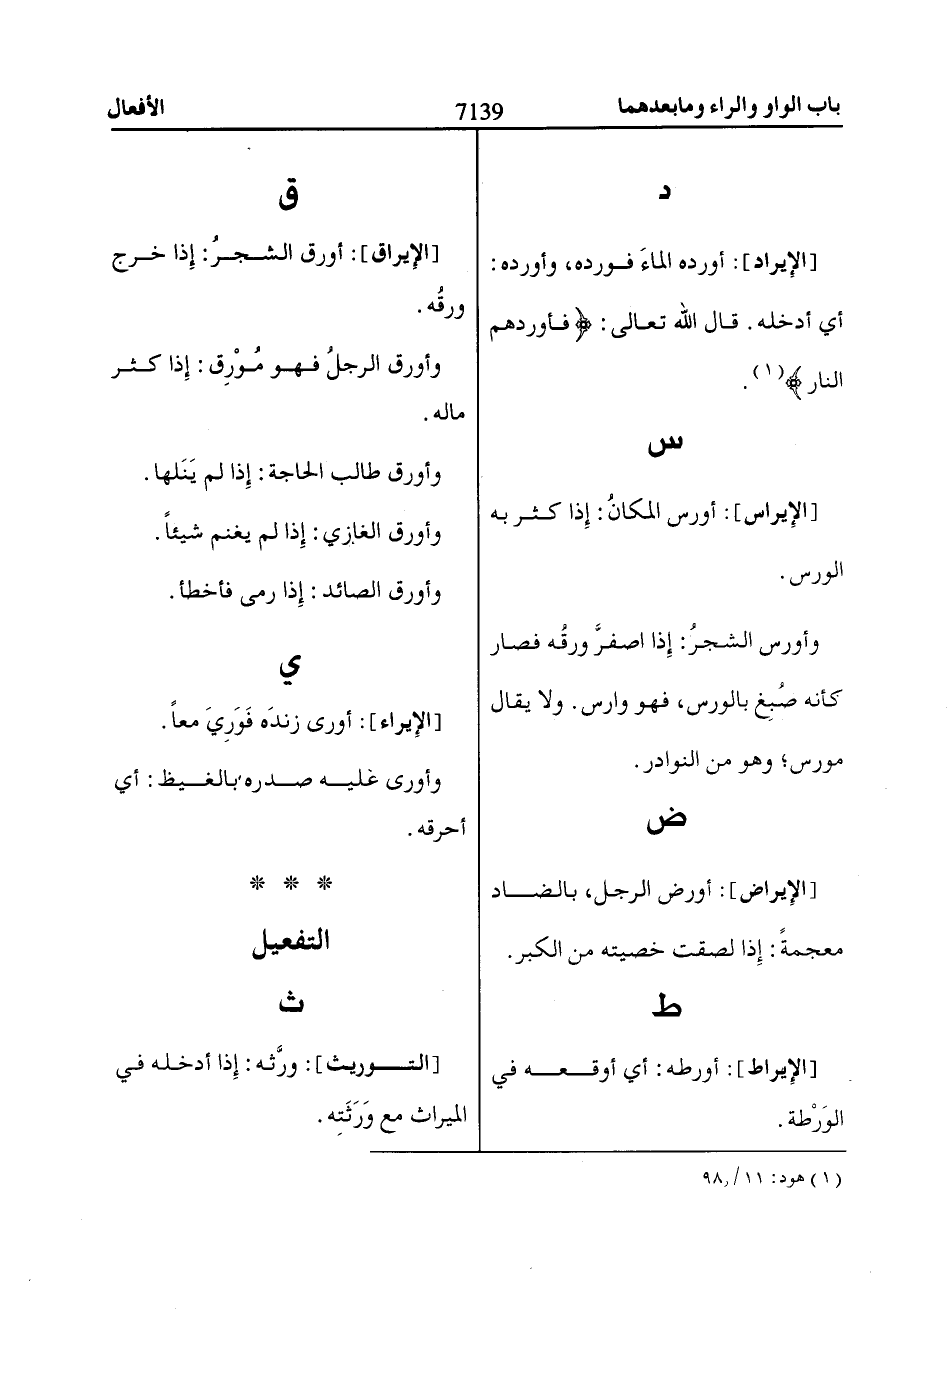 باب الواو والراء ومابعدهما
7139
الأفعال
د
[الإيراد]: أورده الماءَ فورده، وأورده:
أي أدخله. قال الله تعالى: ﴿فأوردهم
النار﴾(١).
س
[الإيراس]: أورس المكانُ: إذا كثر به
الورس.
وأورس الشجرُ: إذا اصفرَّ ورقُه فصار
كأنه صُبِغ بالورس، فهو وارس. ولا يقال
مورس؛ وهو من النوادر.
ض
[الإيراض]: أورض الرجل، بالضاد
معجمةً: إذا لصقت خصيته من الكبر.
ط
[الإيراط]: أورطه: أي أوقعه في
الوَرْطة.
ق
[الإيراق]: أورق الشجرُ: إذا خرج
ورقُه.
وأورق الرجلُ فهو مُوْرِق: إذا كثر
ماله.
وأورق طالب الحاجة: إذا لم يَنَلها.
وأورق الغازي: إذا لم يغنم شيئاً.
وأورق الصائد: إذا رمى فأخطأ.
ي
[الإيراء]: أورى زندَه فَوَرِيَ معاً.
وأورى عليه صدره بالغيظ: أي
أحرقه.
* * *
التفعيل
ث
[التوريث]: ورَّثه: إذا أدخله في
الميراث مع وَرَثَتِه.
(١) هود: ١١/ ٩٨.